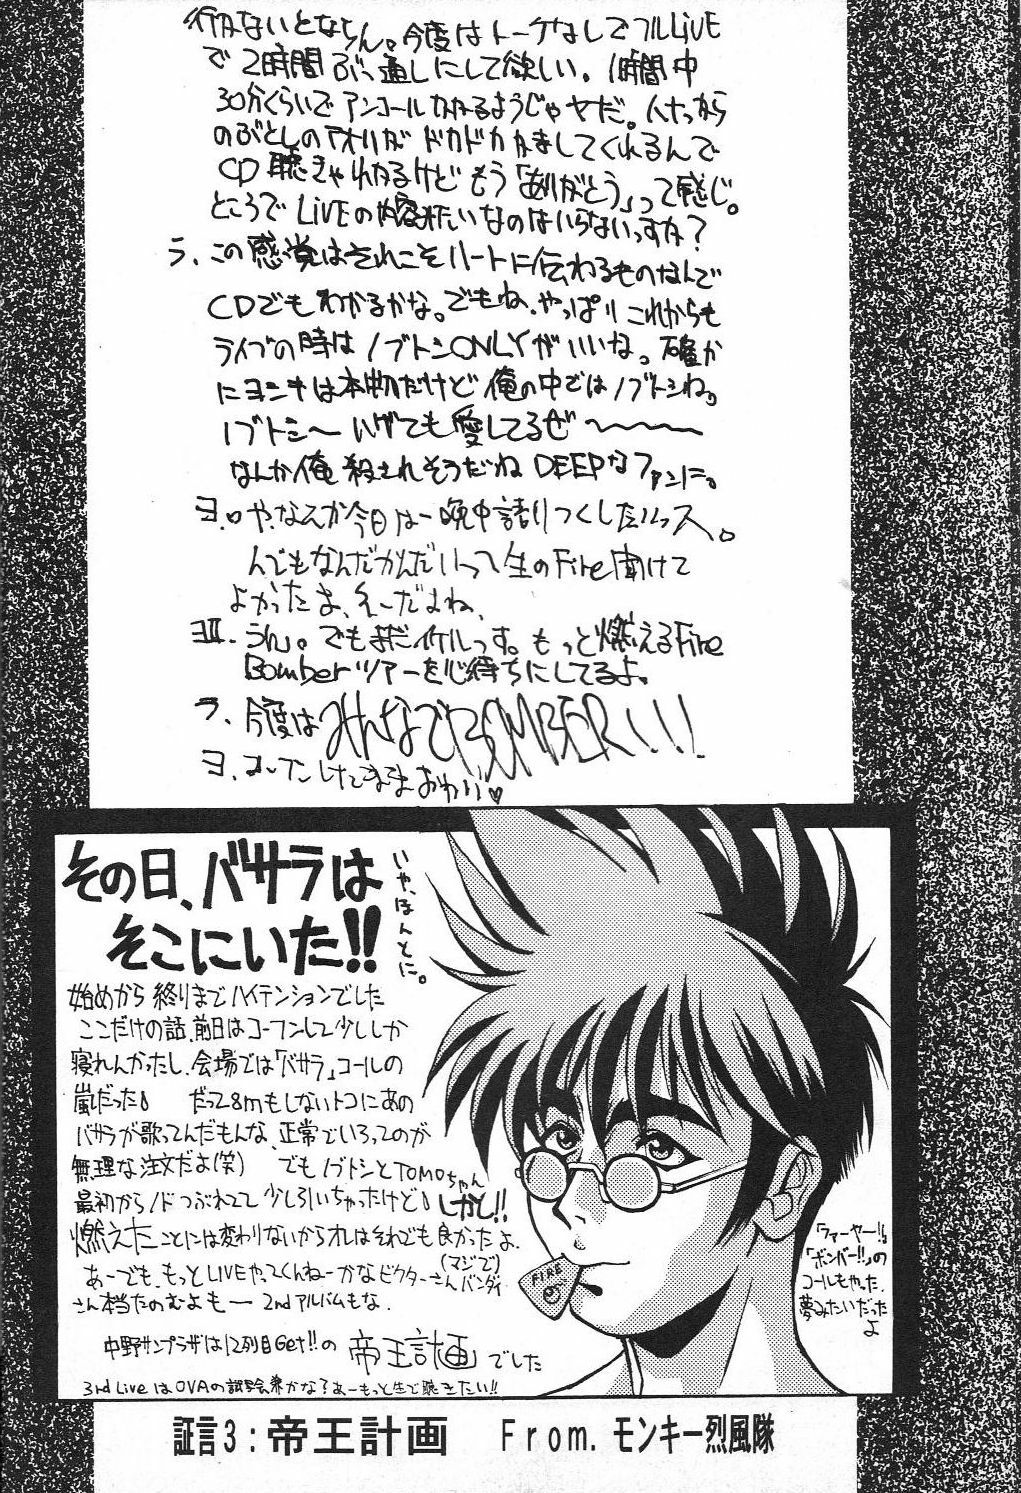 行かないとならん。今度はトークなしでフルLiVE
で2時間ぶっ通しにして欲しい。1時間中
30分くらいでアンコールかかるようじゃヤだ。
のぶとしの がドカドカかましてくれるんで
CD聴きゃわかるけどもう「ありがとう」って感じ。
ところでLiVEの内容 なのはいらないっすか?
ラ. この感覚はそれこそハートに伝わるものなんで
CDでもわかるかな。でもね、やっぱりこれからも
ライブの時はノブトシONLYがいいな。確か
にヨシキは本物だけど俺の中ではノブトシね。
ノブトシ〜ハゲても愛してるぜ〜〜〜〜
なんか俺殺されそうだねDEEPなファンに。
ヨ. 今日は一晩中語りつくしたいっス。
んでもなんだかんだいって生のFire聞けて
よかったよ、
ヨⅡ. うん。でもまだイケルっす。もっと燃えるFire
Bomberツアーを心待ちにしてるよ。
ラ. 今度はみんなでBOMBER!!!
ヨ. おわり♥
その日、バサラは
そこにいた!!
いや、ほんとに。
始めから終りまでハイテンションでした
ここだけの話、前日はコーフンして少ししか
寝れんかったし、会場では「バサラ」コールの
嵐だった! だって8mもしないトコにあの
バサラが歌ってんだもんな、正常でいろってのが
無理な注文だよ(笑) でもノブトシとTOMOちゃん
最初からノドつぶれてて少し引いちゃったけど! しかし!!
燃えたことには変わりないからオレはそれでも良かったよ。
あーでも、もっとLIVEやってくんねーかなビクターさん(マジで)バンダイ
さん本当たのむよもー 2ndアルバムもな.
中野サンプラザは12列目Get!!の 帝王計画 でした
3rd LiveはOVAの試写会兼かな?あーもっと生で聴きたい!!
FIRE
「ファーヤー!!」
「ボンバー!!」の
コールもやった.
夢みたいだった
よ
証言3:帝王計画 From.モンキー烈風隊